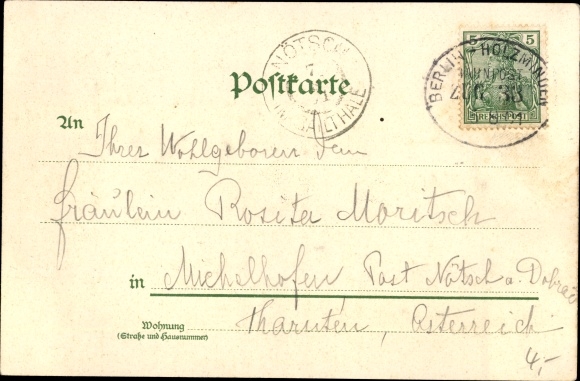 NÖTSCH
7
IM GAILTHALE
5 5
BERLIN - HOLZMINDEN
BAHNPOST
ZUG 33
REICHSPOST
Postkarte
An
Ihrer Wohlgeboren dem
Fräulein Rosita Moritsch
in Michelhofen Post Nötsch a. Dobrač
Wohnung
(Straße und Hausnummer)
Kärnten, Österreich
4,-